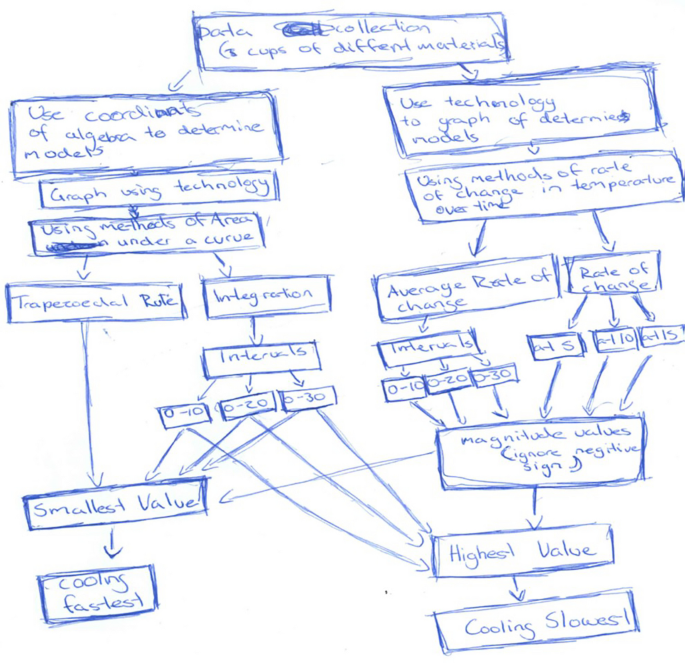 Data collection
(3 cups of different materials)
Use coordinats
of algebra to determine
models
Use technology
to graph of determies
models
Graph using technology
Using methods of rate
of change in temperature
over time
Using methods of Area
under a curve
Traperoedal Rule
Integration
Average Rate of
change
Rate of
change
Intervals
0-10
0-20
0-30
Intervals
0-10
0-20
0-30
at 5
at 10
at 15
magnitude values
(ignore negitive
sign)
Smallest Value
Highest Value
Cooling
fastest
Cooling Slowest